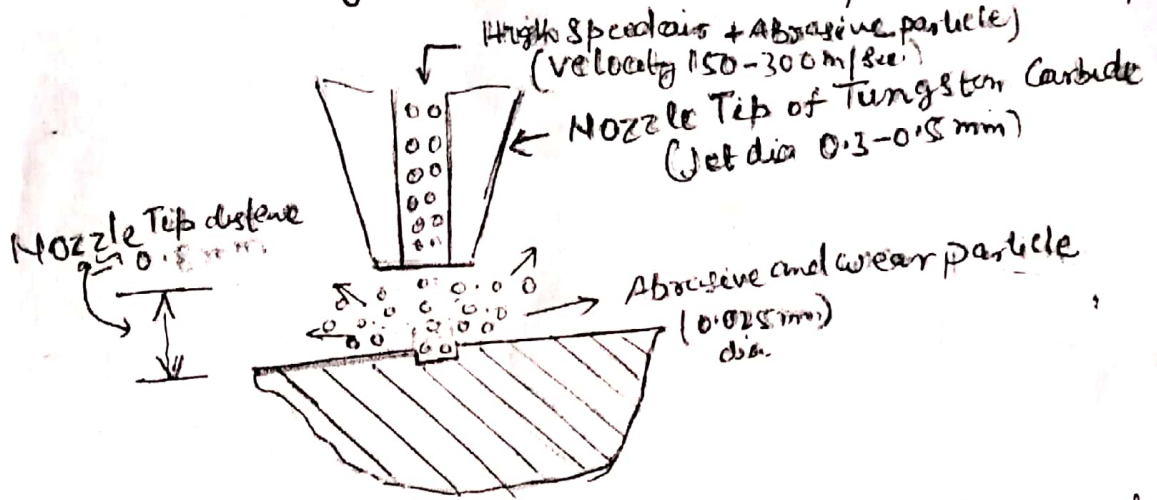 High Speed air + Abrasive particle)
(velocity 150-300 m/sec.)
Nozzle Tip of Tungsten Carbide
(Jet dia 0.3-0.5 mm)
Nozzle Tip distance
Abrasive and wear particle
(0.025 mm)
dia.